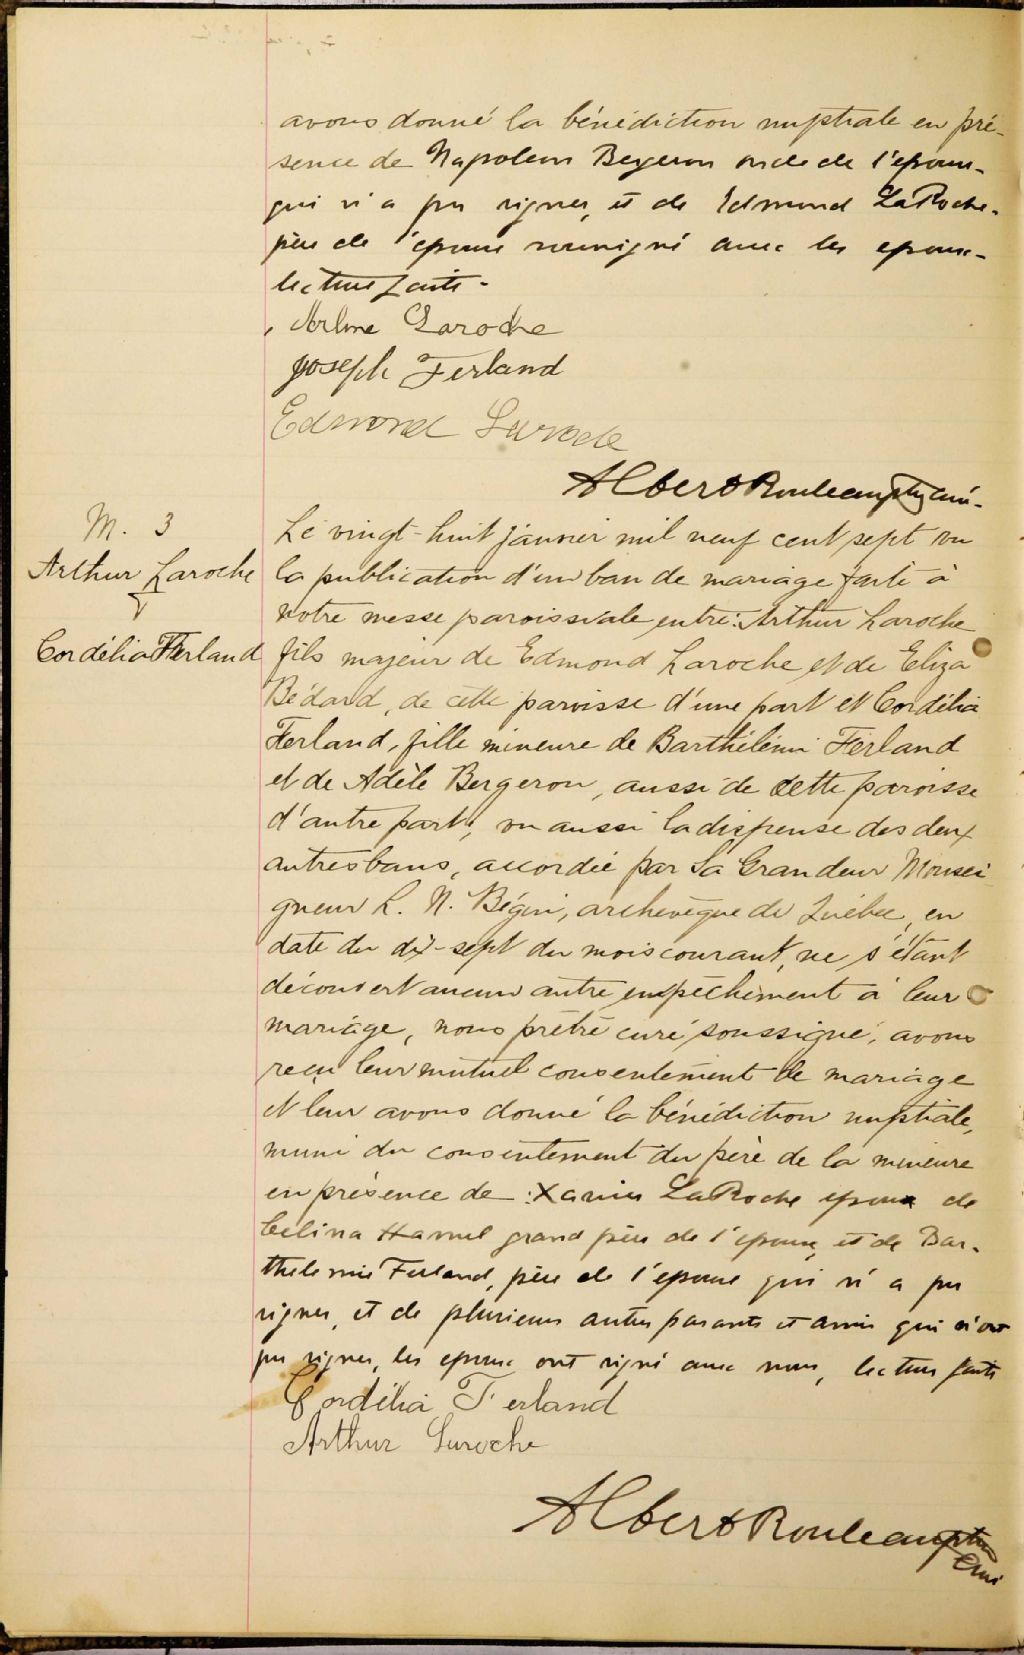 avons donné la bénédiction nuptiale en pré-
sence de Napoleon Bergeron oncle de l'epoux-
qui n'a pu signer, et de Edmond LaRoche-
père de l'epouse soussigné avec les epoux-
lecture faite-
Laroche
Joseph Ferland
Edmond Laroche
Albert Rouleau ptre curé-
M. 3
Arthur Laroche
&
Cordélia Ferland
Le vingt-huit janvier mil neuf cent sept vu
la publication d'un ban de mariage faite à
notre messe paroissiale entre: Arthur Laroche
fils majeur de Edmond Laroche et de Eliza
Bédard, de cette paroisse d'une part et Cordélia
Ferland, fille mineure de Barthélémi Ferland
et de Adèle Bergeron, aussi de cette paroisse
d'autre part, vu aussi la dispense des deux
autres bans, accordée par Sa Grandeur Monsei
gneur L. N. Bégin, archevêque de Québec, en
date du dix-sept du mois courant, ne s'étant
découvert aucun autre empêchement à leur
mariage, nous prêtre curé soussigné, avons
reçu leur mutuel consentement de mariage
et leur avons donné la bénédiction nuptiale,
muni du consentement du père de la mineure
en présence de: Xavier LaRoche epoux de
Celina Hamel grand père de l'epoux, et de Bar-
thelemie Ferland, père de l'epouse qui n'a pu
signer, et de plusieurs autres parents et amis qui n'ont
pu signer, les epoux ont signé avec nous, lecture faite
Cordélia Ferland
Arthur Laroche
Albert Rouleau ptre
curé